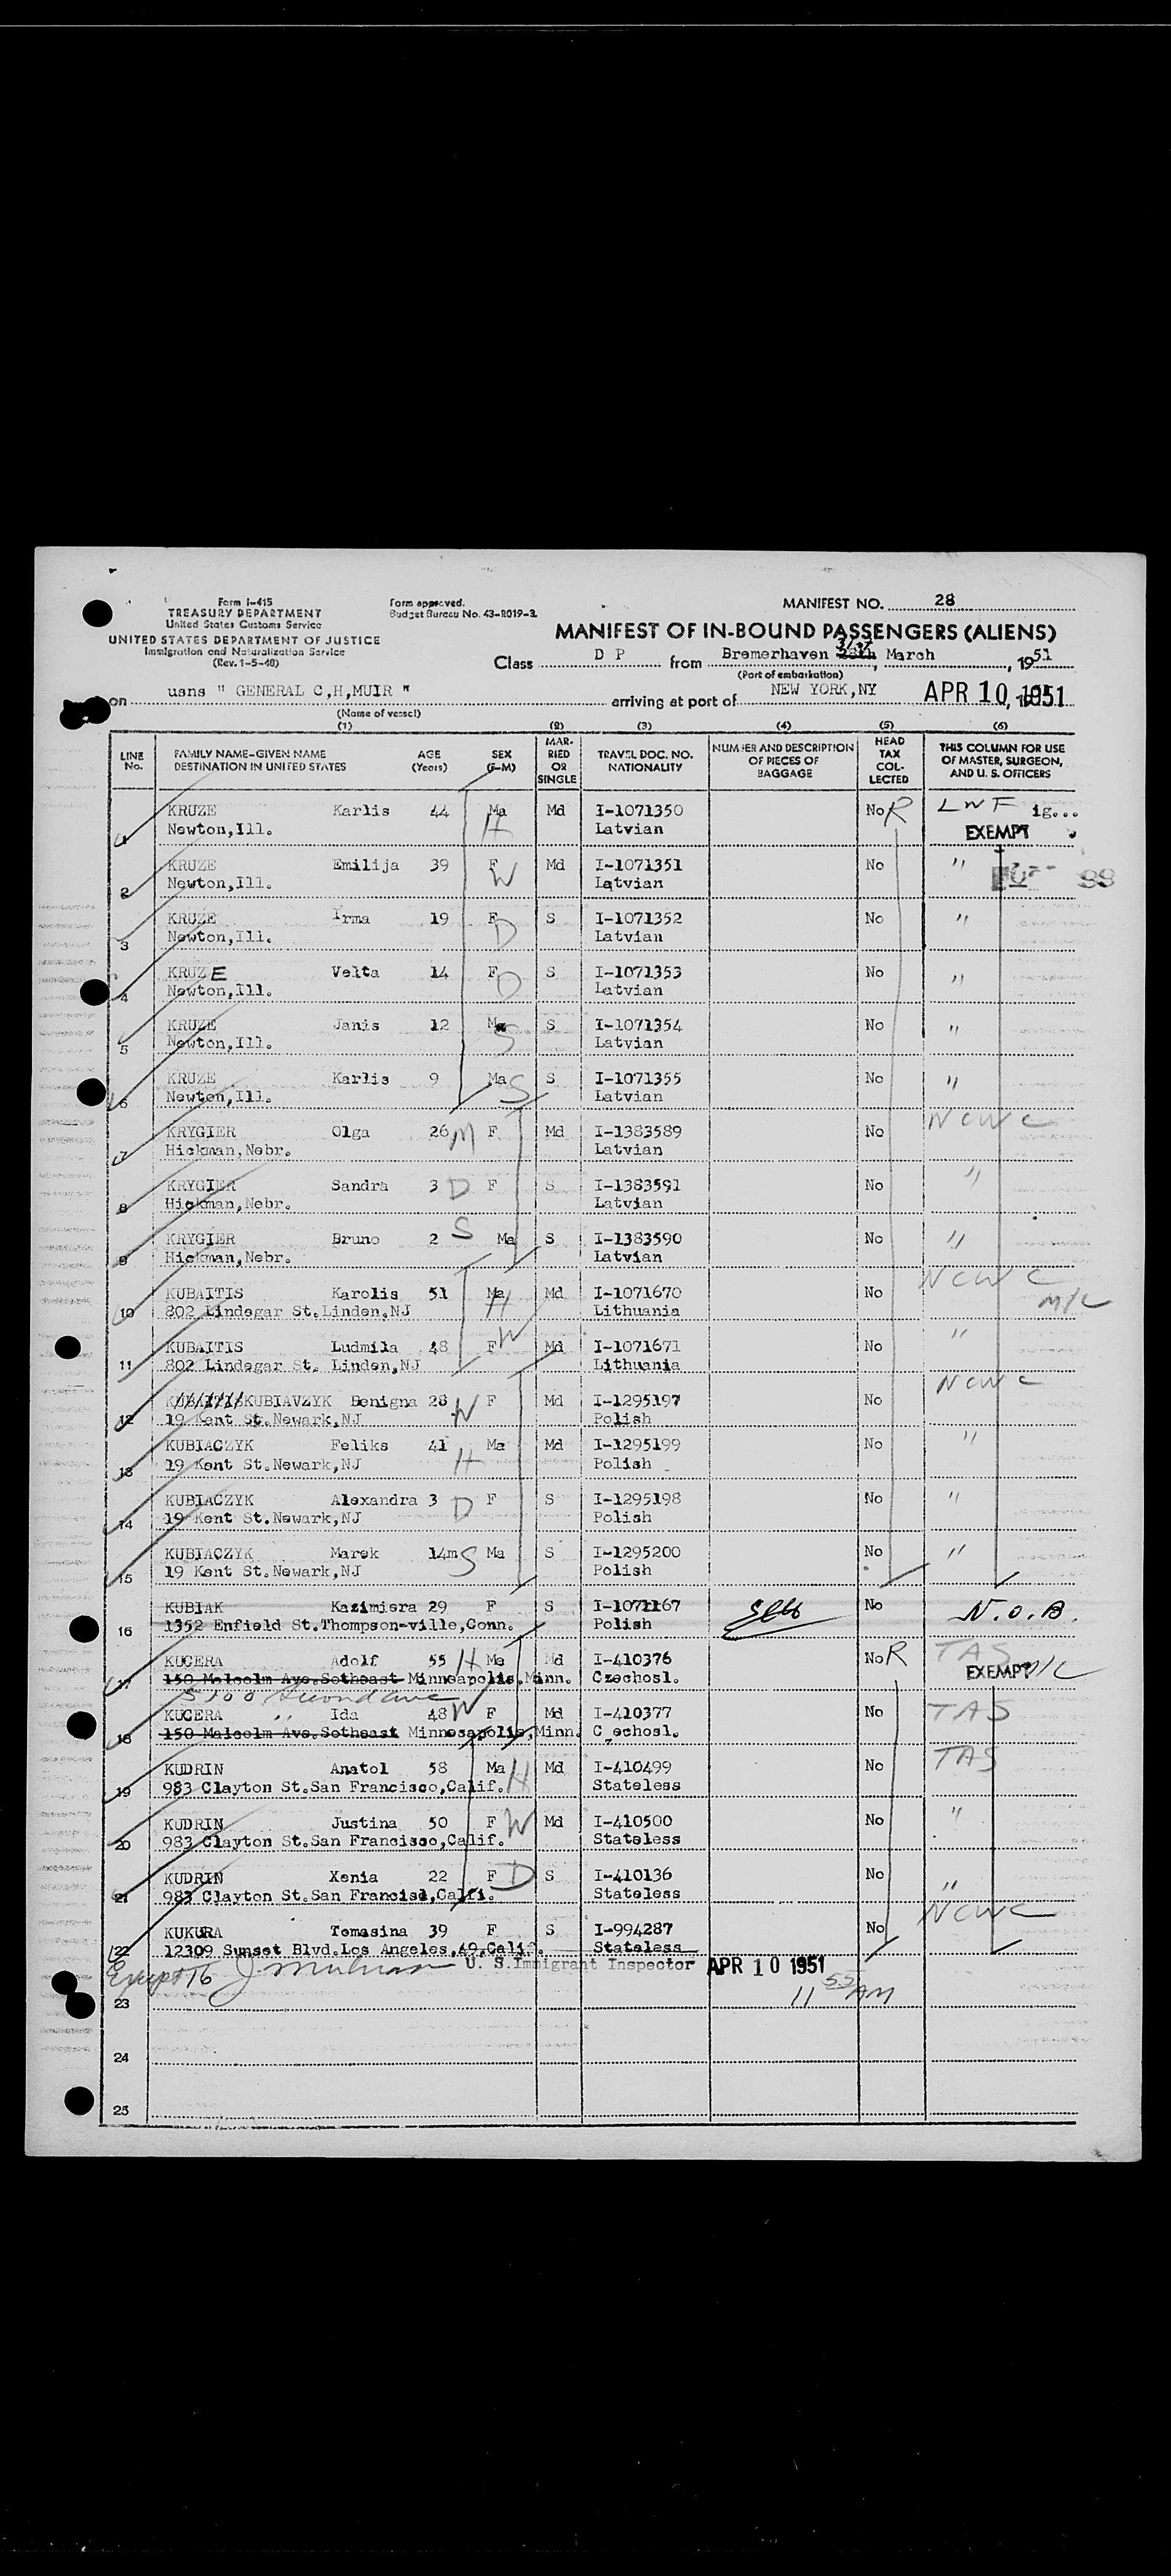 Form I-415
TREASURY DEPARTMENT
United States Customs Service
UNITED STATES DEPARTMENT OF JUSTICE
Immigration and Naturalization Service
(Rev. 1-5-48)
Form approved.
Budget Bureau No. 43-R019-3.
MANIFEST NO. 28
MANIFEST OF IN-BOUND PASSENGERS (ALIENS)
Class D P from Bremerhaven 31st March, 1951
(Port of embarkation)
on usns " GENERAL C,H,MUIR " arriving at port of NEW YORK,NY APR 10 1951
(Name of vessel)
(1) (2) (3) (4) (5) (6)
LINE No. FAMILY NAME-GIVEN NAME DESTINATION IN UNITED STATES AGE (Years) SEX (F-M) MARRIED OR SINGLE TRAVEL DOC. NO. NATIONALITY NUMBER AND DESCRIPTION OF PIECES OF BAGGAGE HEAD TAX COLLECTED THIS COLUMN FOR USE OF MASTER, SURGEON, AND U. S. OFFICERS
1 KRUZE Karlis 44 Ma H Md I-1071350 No R LWF ig...
Newton,Ill. Latvian EXEMPT
2 KRUZE Emilija 39 F W Md I-1071351 No "
Newton,Ill. Latvian
3 KRUZE Irma 19 F D S I-1071352 No "
Newton,Ill. Latvian
4 KRUZE Velta 14 F D S I-1071353 No "
Newton,Ill. Latvian
5 KRUZE Janis 12 Ma S S I-1071354 No "
Newton,Ill. Latvian
6 KRUZE Karlis 9 Ma S S I-1071355 No "
Newton,Ill. Latvian
7 KRYGIER Olga 26 M F Md I-1383589 No NCWC
Hickman,Nebr. Latvian
8 KRYGIER Sandra 3 D F S I-1383591 No "
Hickman,Nebr. Latvian
9 KRYGIER Bruno 2 S Ma S I-1383590 No "
Hickman,Nebr. Latvian
10 KUBAITIS Karolis 51 Ma H Md I-1071670 No NCWC
802 Lindegar St.Linden,NJ Lithuania M/L
11 KUBAITIS Ludmila 48 F W Md I-1071671 No "
802 Lindegar St. Linden,NJ Lithuania
12 KUBIAVZYK Benigna 28 W F Md I-1295197 No NCWC
19 Kent St.Newark,NJ Polish
13 KUBIACZYK Feliks 41 H Ma Md I-1295199 No "
19 Kent St.Newark,NJ Polish
14 KUBIACZYK Alexandra 3 D F S I-1295198 No "
19 Kent St.Newark,NJ Polish
15 KUBIACZYK Marek 14m S Ma S I-1295200 No "
19 Kent St.Newark,NJ Polish
16 KUBIAK Kazimiera 29 F S I-1071167 No N.O.B.
1352 Enfield St.Thompson-ville,Conn. Polish
17 KUCERA Adolf 55 H Ma Md I-410376 No R TAS
150 Malcolm Ave.Sotheast Minneapolis,Minn. Czechosl. EXEMPT M/L
5100 Second ave
18 KUCERA " Ida 48 W F Md I-410377 No TAS
150 Malcolm Ave.Sotheast Minnesapolis,Minn. C echosl.
19 KUDRIN Anatol 58 Ma H Md I-410499 No TAS
983 Clayton St.San Francisco,Calif. Stateless
20 KUDRIN Justina 50 F W Md I-410500 No "
983 Clayton St.San Francisco,Calif. Stateless
21 KUDRIN Xenia 22 F D S I-410136 No "
983 Clayton St.San Francisl,Calfi. Stateless
22 KUKURA Tomasina 39 F S I-994287 No NCWC
12309 Sunset Blvd.Los Angeles,49,Calif. Stateless
Except 16 U. S.Immigrant Inspector APR 10 1951
11 55 AM
23
24
25